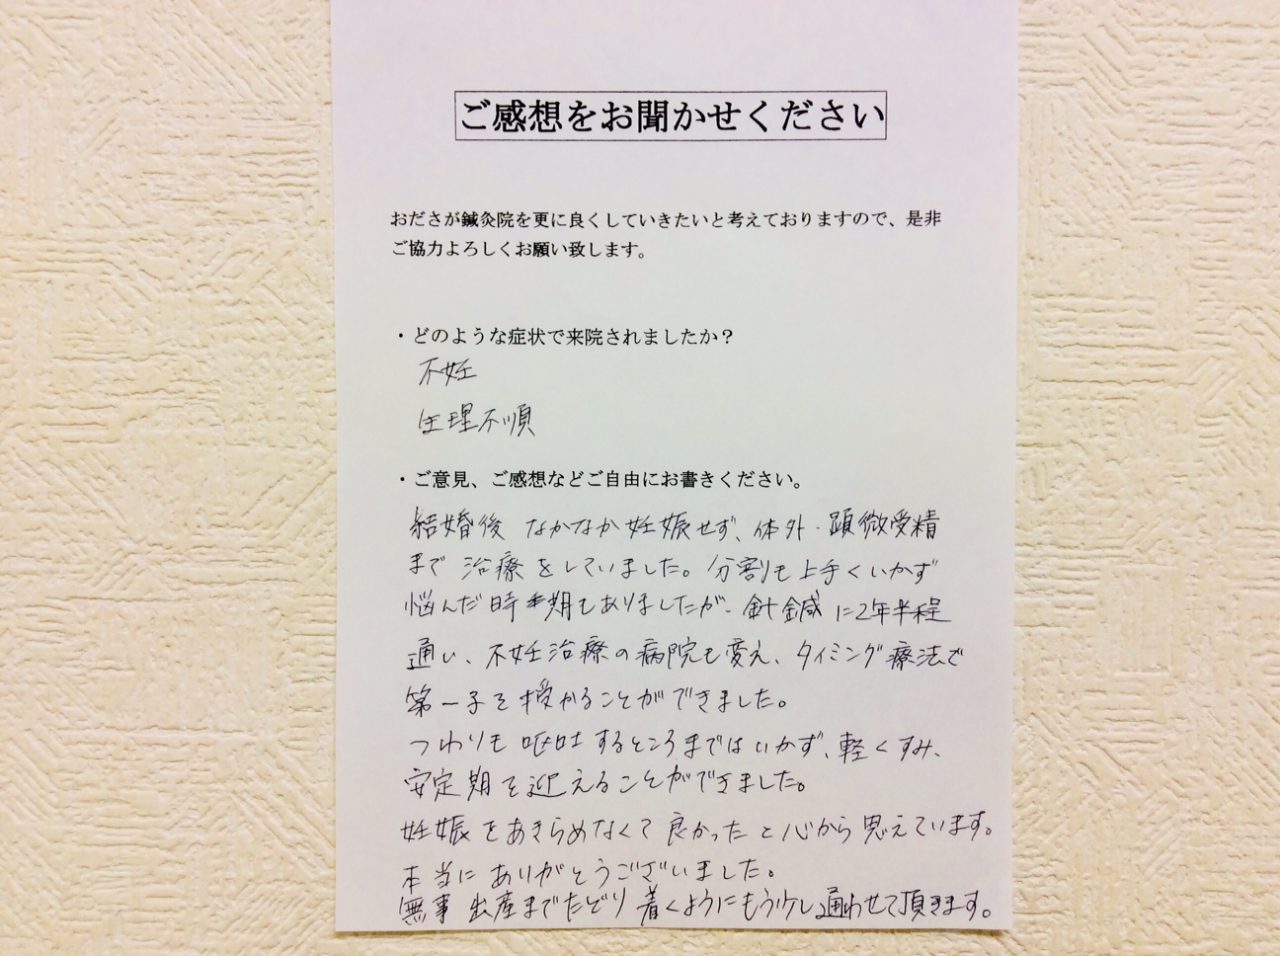 ご感想をお聞かせください
おださが鍼灸院を更に良くしていきたいと考えておりますので、是非
ご協力よろしくお願い致します。
・どのような症状で来院されましたか？
不妊
生理不順
・ご意見、ご感想などご自由にお書きください。
結婚後 なかなか妊娠せず、体外・顕微受精
まで 治療をしていました。分割も上手くいかず
悩んだ時期もありましたが、針鍼に2年半程
通い、不妊治療の病院も変え、タイミング療法で
第一子を授かることができました。
つわりも嘔吐するところまではいかず、軽くすみ、
安定期を迎えることができました。
妊娠をあきらめなくて良かったと心から思えています。
本当にありがとうございました。
無事 出産までたどり着くようにもう少し通わせて頂きます。